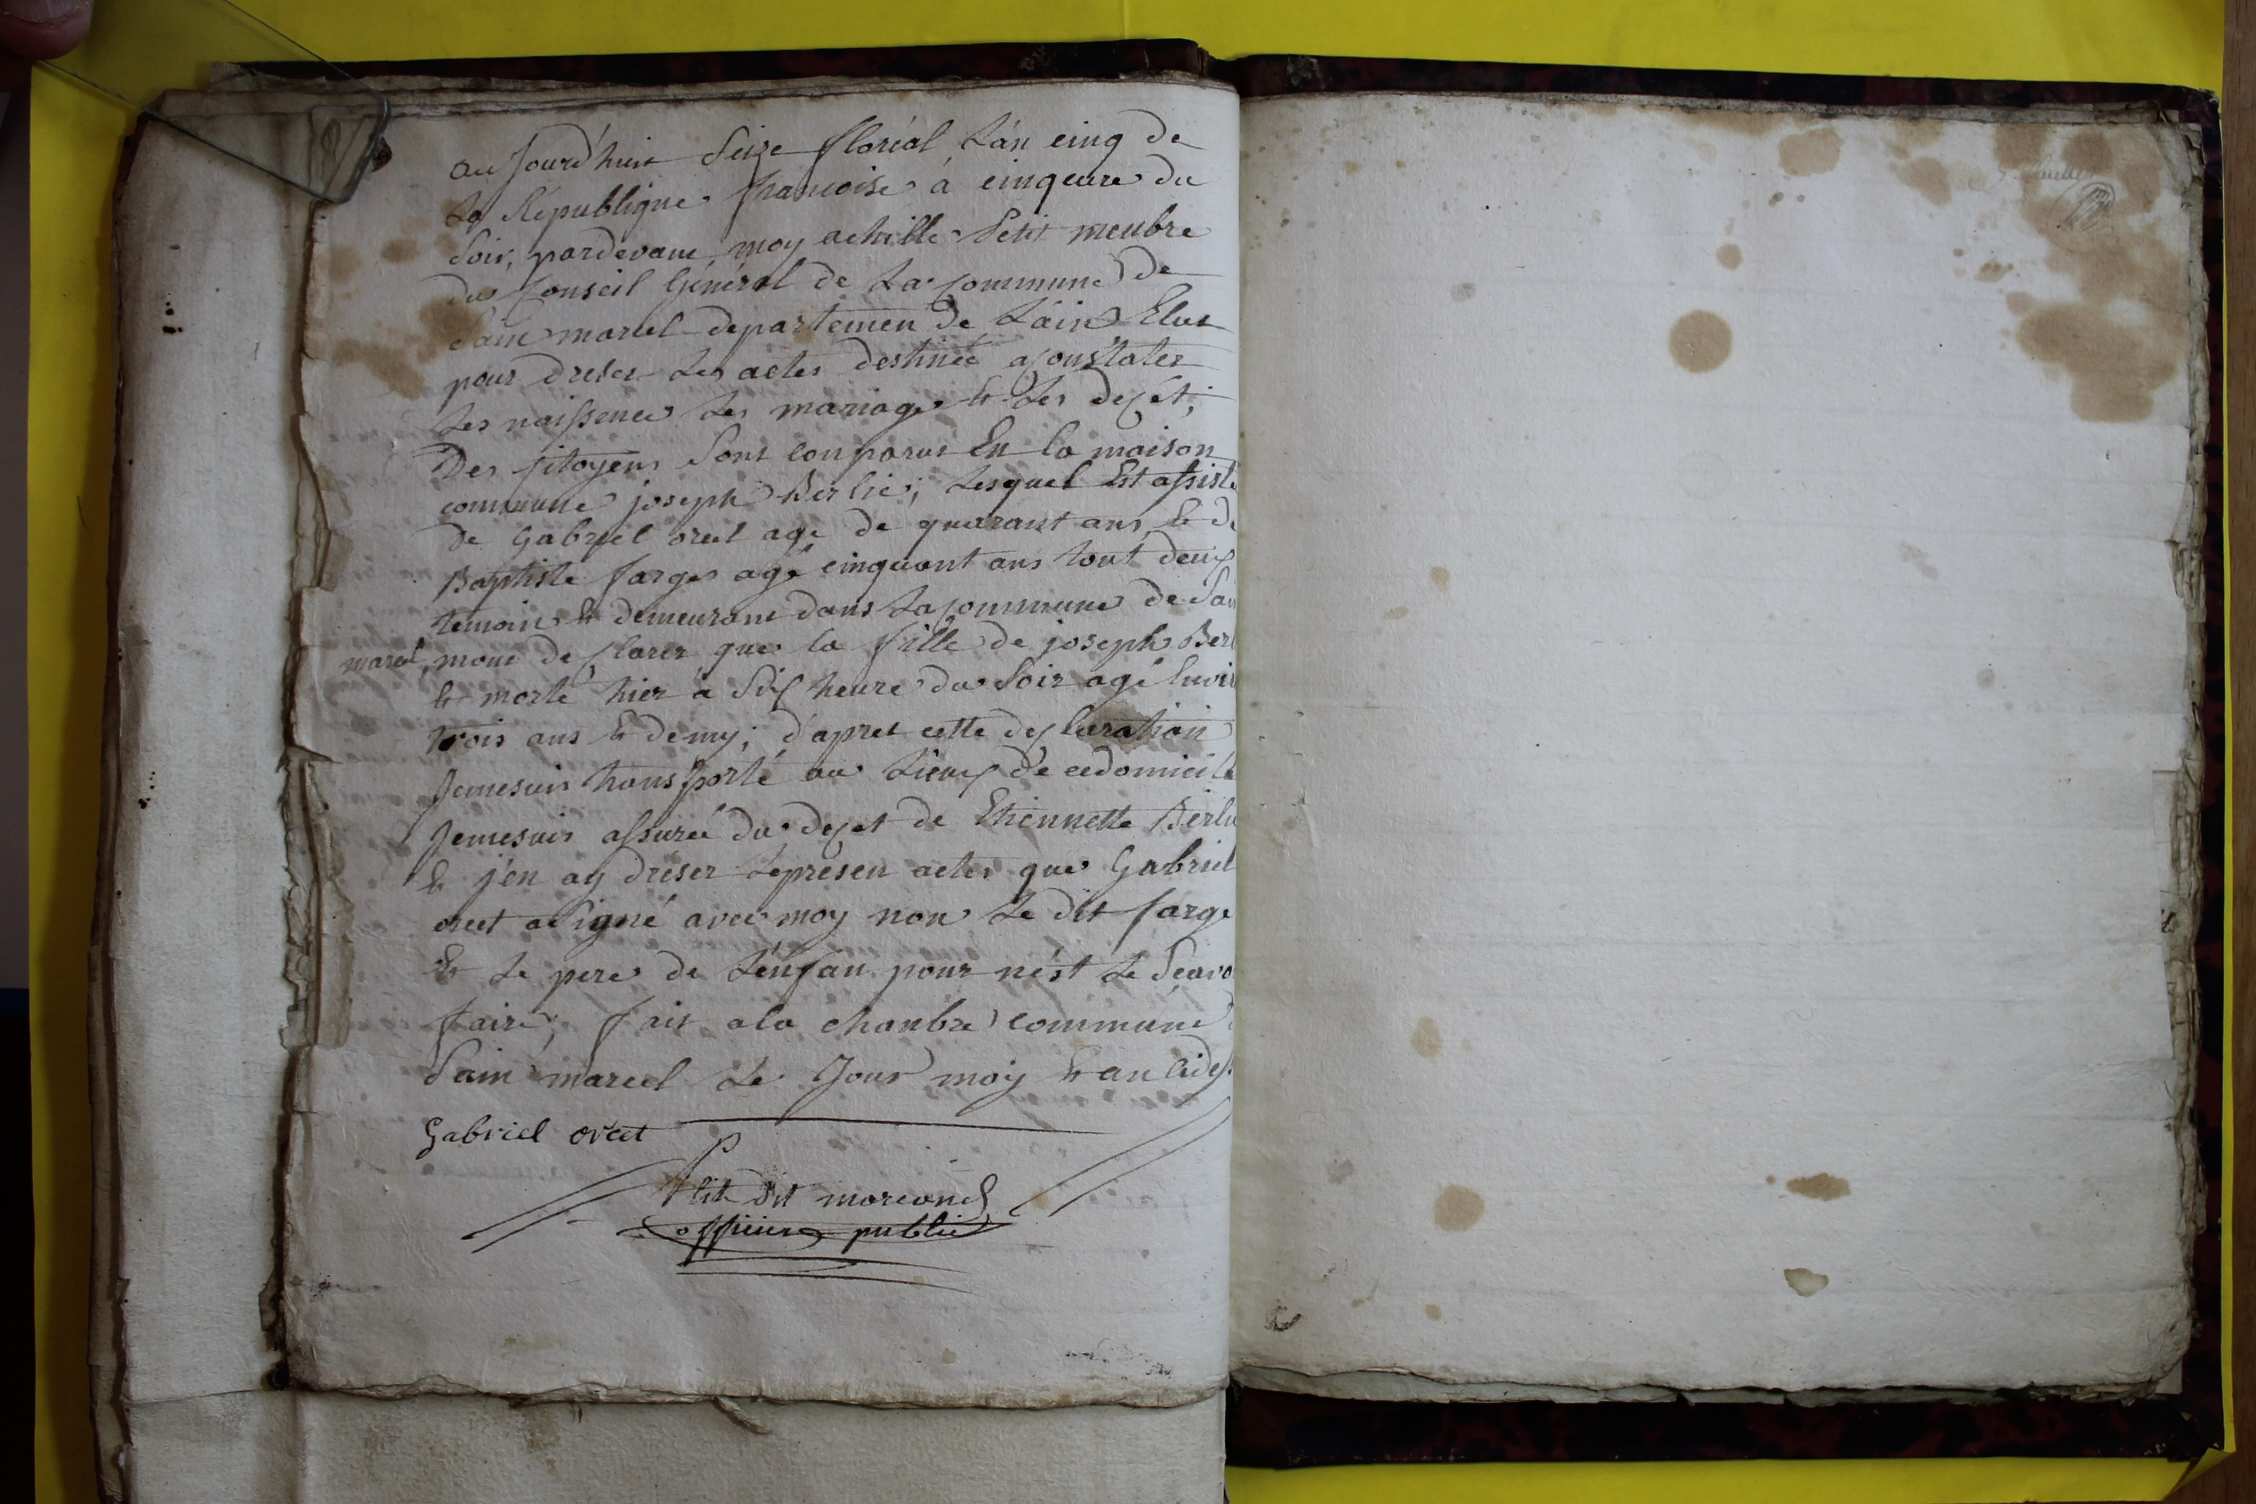 aujourd'huit Seize floréal L'an cinq de
La République francoise a cinq eure du
Soir, pardevant moy achille Petit meubre
du Conseil Général de La Commune de
Sain marcel departemen de L'ain Elut
pour dreser Les actes destinée a constater
Les naissence Les mariage et Les decet;
Des Citoyens Sont conparut En la maison
commune joseph Berlie; Lesquel Est assisté
de Gabriel orcet age de quarant ans, et de
Baptiste farge agé cinquant ans tout deux
temoin et demeurant dans La Commune de Sain
marcel, mont declarer que la fille de joseph Berl
et morte hier a Six heure du Soir agé Envir
trois ans et demy; d'apret cette declaration
Jemesuis transporté au Lieux de cedomicile
Jemesuis assurée du decet de Etiennette Berli
et j'en ay dréser Leprésen acter que Gabriel
orcet a Signé avec moy non Le dit farge
et Le pere de L'enfan pour nést Le Scavo
faire; fait a la chanbre commune d
Sain marcel Le Jour moy et an cides
Gabriel orcet
Petit dit morcand
officier public